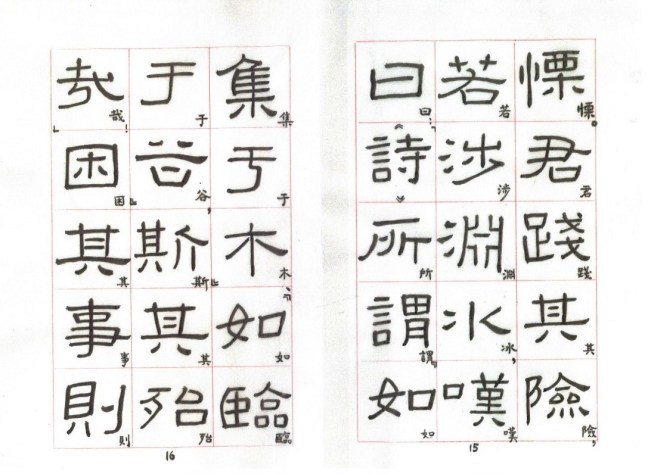 慄。君踐其險,
若涉淵冰,嘆
曰:「《詩》所謂『如
15
集于木、『如臨
于谷,斯』其殆
哉!」困其事則
16